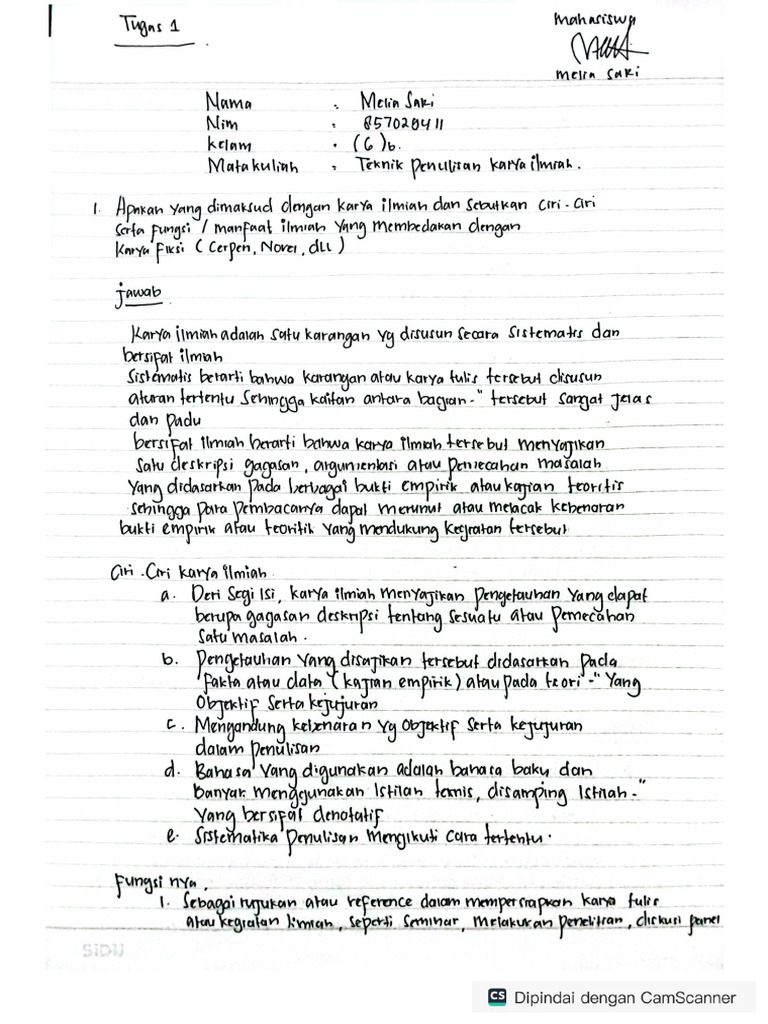 Tugas 1
Mahasiswa
Melia Saki
Nama : Melia Saki
Nim : 857020411
kelam : (6) b.
Matakuliah : Teknik Penulisan Karya ilmiah.
1. Apakah yang dimaksud dengan karya ilmiah dan sebutkan ciri-ciri
serta fungsi / manfaat ilmiah yang membedakan dengan
karya fiksi ( Cerpen, Novel, dll )
jawab
Karya ilmiah adalah satu karangan yg disusun secara sistematis dan
bersifat ilmiah
Sistematis berarti bahwa karangan atau karya tulis tersebut disusun
aturan tertentu sehingga kaitan antara bagian-" tersebut sangat jelas
dan padu
bersifat ilmiah berarti bahwa karya ilmiah tersebut menyajikan
satu deskripsi gagasan, argumentasi atau pemecahan masalah
yang didasarkan pada berbagai bukti empirik atau kajian teoritis
sehingga para pembacanya dapat merunut atau melacak kebenaran
bukti empirik atau teoritik yang mendukung kegiatan tersebut
Ciri-Ciri karya ilmiah
a. Deri Segi Isi, karya ilmiah menyajikan pengetauhan yang dapat
berupa gagasan deskripsi tentang sesuatu atau pemecahan
satu masalah.
b. Pengetauhan yang disajikan tersebut didasarkan pada
fakta atau data ( kajian empirik ) atau pada teori-" yang
Objektif serta kejujuran
c. Mengandung kebenaran yg Objektif serta kejujuran
dalam penulisan
d. Bahasa yang digunakan adalah bahasa baku dan
banyak menggunakan istilah temis, disamping istilah-"
yang bersifat denotatif
e. Sistematika penulisan mengikuti cara tertentu.
Fungsi nya,
1. Sebagai rujukan atau reference dalam mempersiapkan karya tulis
atau kegiatan ilmiah, seperti seminar, melakukan penelitian, diskusi panel
SiDU
CS Dipindai dengan CamScanner